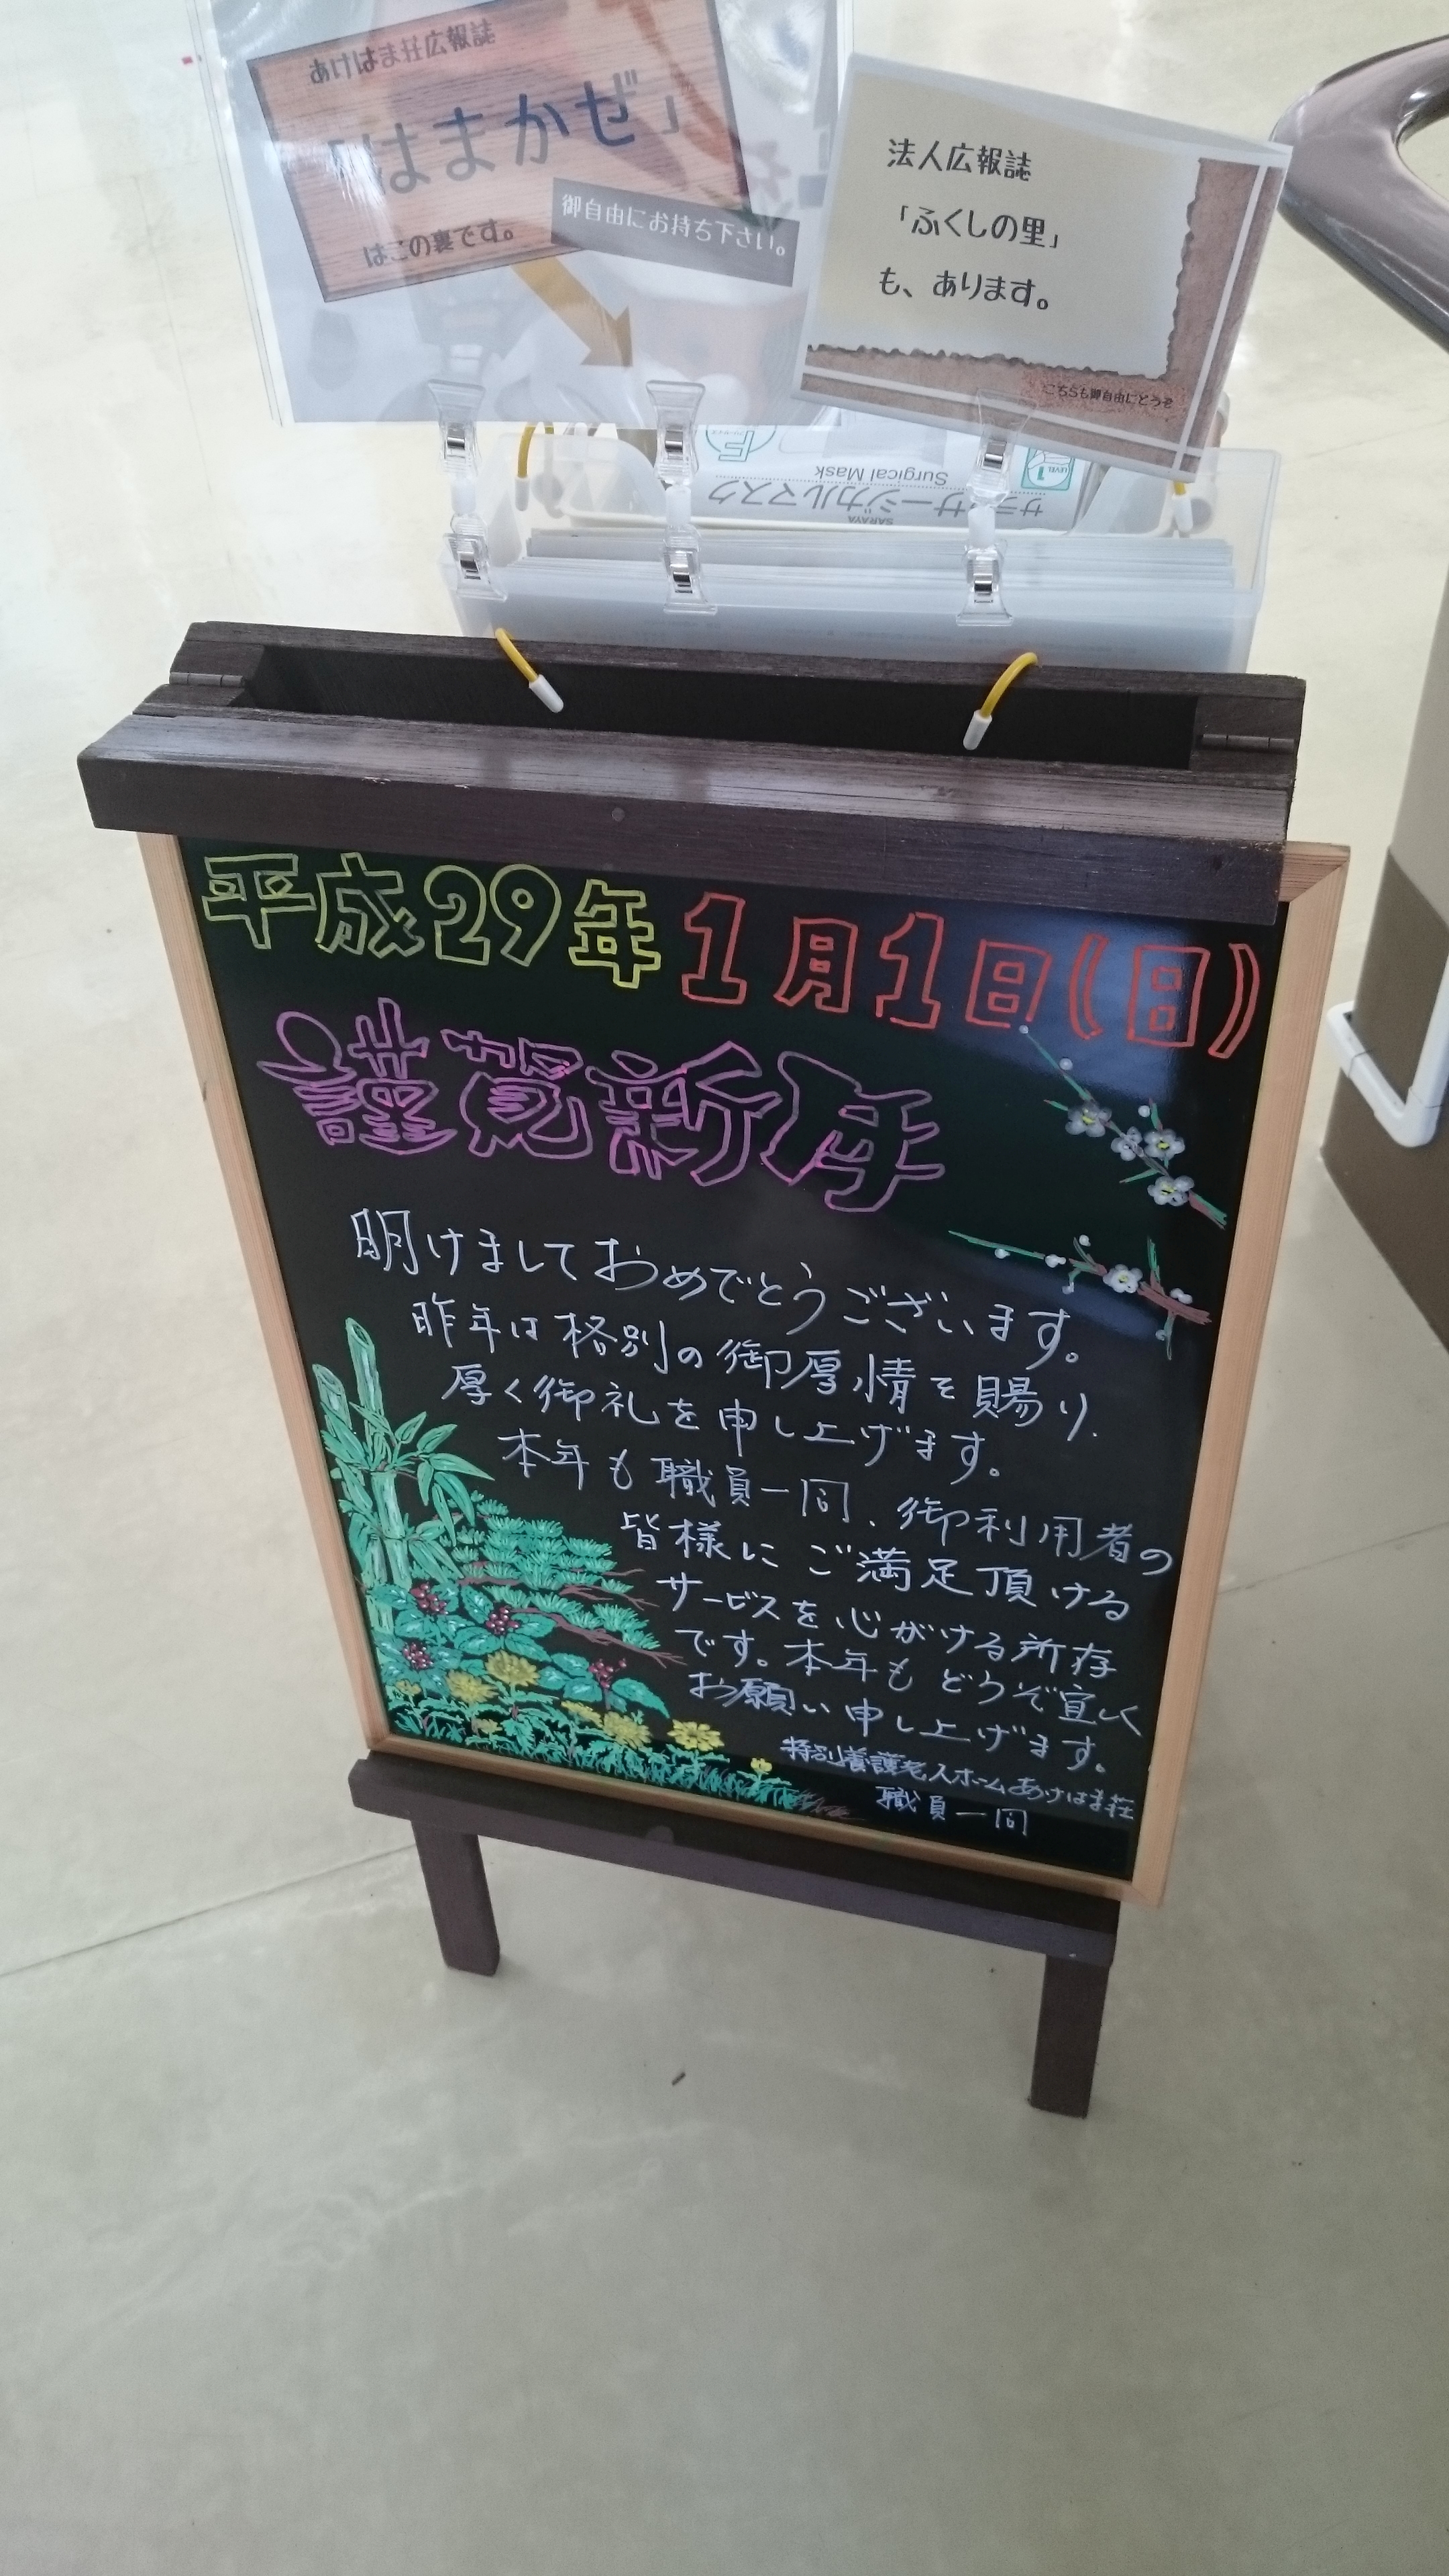 あけはま荘広報誌
「はまかぜ」
はこの裏です。
御自由にお持ち下さい。
法人広報誌
「ふくしの里」
も、あります。
こちらも御自由にどうぞ
サラヤサージカルマスク
Surgical Mask
SARAYA
LEVEL 1
平成29年1月1日(日)
謹賀新年
明けましておめでとうございます。
昨年は格別の御厚情を賜り、
厚く御礼を申し上げます。
本年も職員一同、御利用者の
皆様にご満足頂ける
サービスを心がける所存
です。本年もどうぞ宜しく
お願い申し上げます。
特別養護老人ホームあけはま荘
職員一同